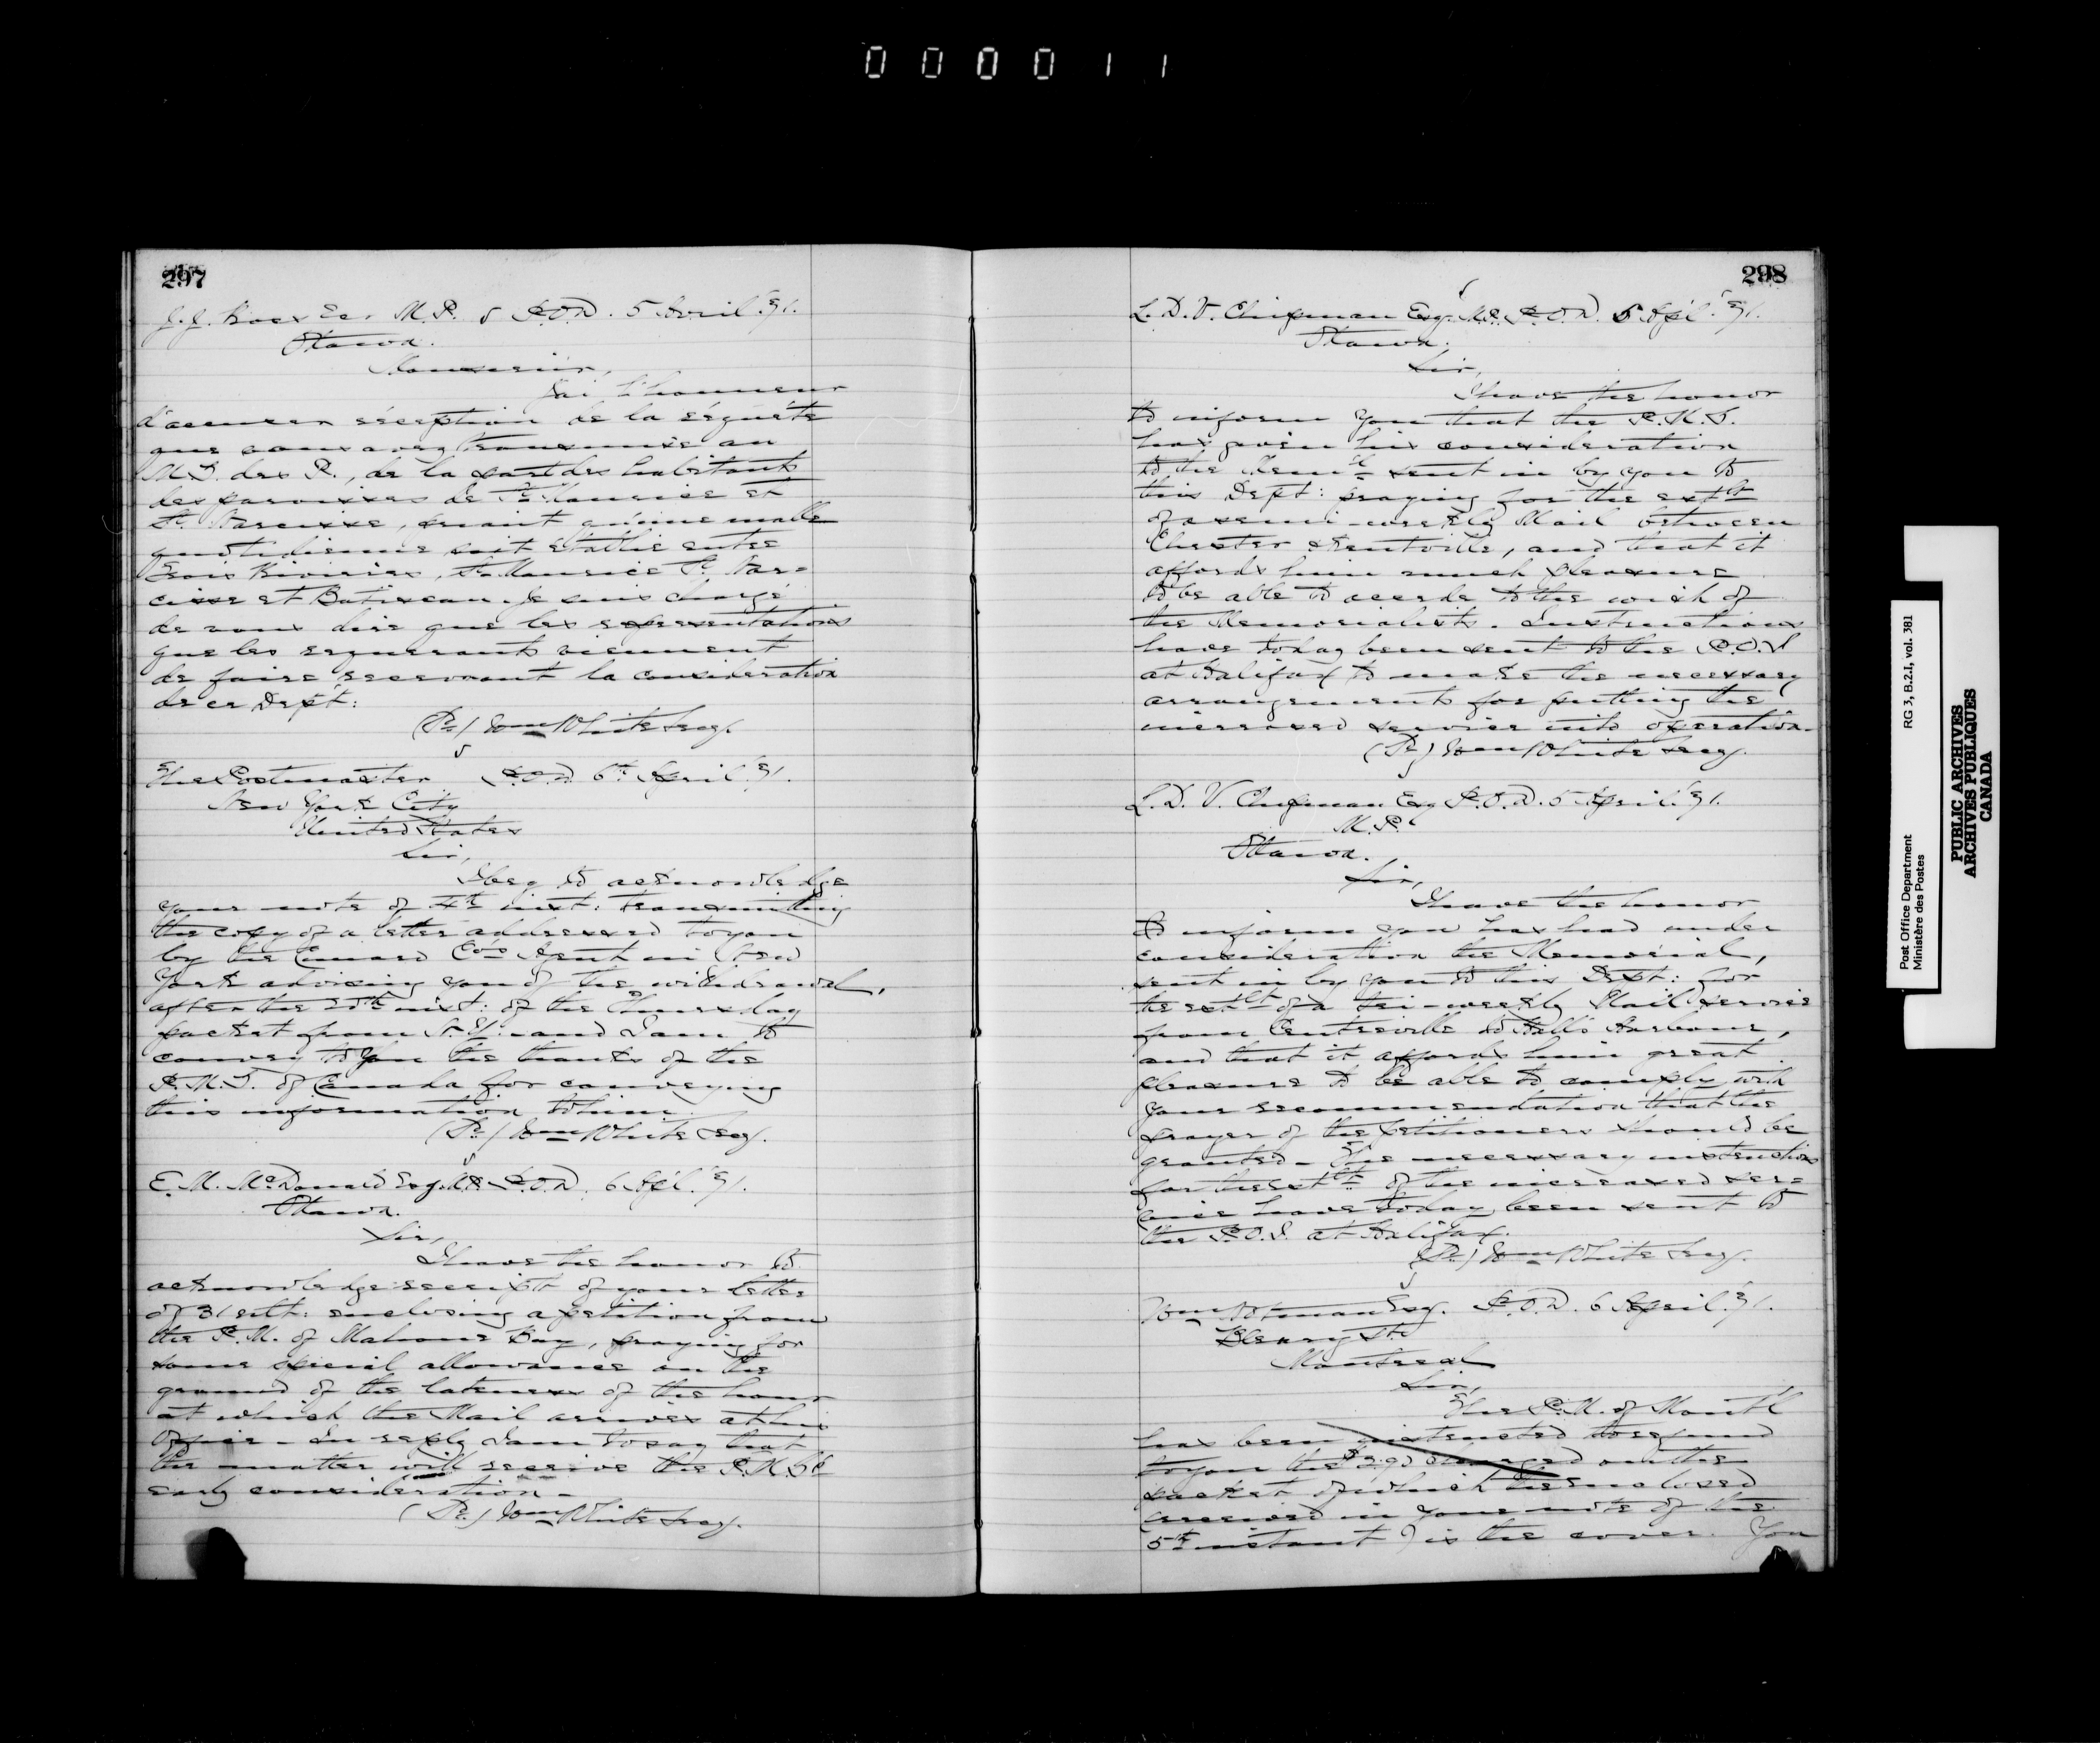 000011
297
J. J. Ross Esr. M.P. P.O.D. 5 Avril '71.
Ottawa.
Monsieur,
J'ai l'honneur
d'accuser réception de la requête
que vous avez transmise au
M.G. des P., de la part des habitants
des paroisses de St. Maurice et
St. Narcisse, priant qu'une malle
quotidienne soit établie entre
Trois Rivières, St. Maurice St. Nar=
cisse et Batiscan. Je suis chargé
de vous dire que les representations
que les requerants viennent
de faire recevront la consideration
de ce Dept:
(Sd.) Wm White Secy.
The Postmaster P.O.D. 6th April '71.
New York City
United States
Sir,
I beg to acknowledge
your note of 4th inst: transmitting
the copy of a letter addressed to you
by the Cunard Co's Agent in New
York advising you of the withdrawal,
after the 20th inst: of the Thursday
packet from N.Y. - and I am to
convey to you the thanks of the
P.M.G. of Canada for conveying
this information to him.
(Sd.) Wm White Secy.
E. M. McDonald Esq. M.P. P.O.D. 6 Apl. '71.
Ottawa.
Sir,
I have the honor to
acknowledge receipt of your letter
of 31 ult: enclosing a petition from
the P.M. of Mahone Bay, praying for
some special allowance on the
ground of the lateness of the hour
at which the Mail arrives at his
Office - In reply I am to say that
the matter will receive the P.M.G's
early consideration -
(Sd.) Wm White Secy.
298
L. D. V. Chipman Esq. M.P. P.O.D. 5 Apl. '71.
Ottawa.
Sir,
I have the honor
to inform you that the P.M.G.
has given his consideration
to the Meml sent in by you to
this Dept: praying for the estlt
of a semi-weekly Mail between
Chester & Kentville, and that it
affords him much pleasure
to be able to accede to the wish of
the Memorialists. Instructions
have today been sent to the P.O.I.
at Halifax to make the necessary
arrangements for putting the
increased service into operation.
(Sd.) Wm White Secy.
L. D. V. Chipman Esq P.O.D. 5 April '71.
M.P.
Ottawa.
Sir,
I have the honor
to inform you has had under
consideration the Memorial,
sent in by you to this Dept: for
the estlt of a tri-weekly Mail service
from Centreville to Hall's Harbour,
and that it affords him great
pleasure to be able to comply with
your recommendation that the
prayer of the petitioners should be
granted - The necessary instructions
for the estlt of the increased ser=
vice have today been sent to
the P.O.I. at Halifax.
(Sd.) Wm White Secy.
Wm Notman Esq. P.O.D. 6 April '71.
Bleury St.
Montreal
Sir,
The P.M. of Mont'l
has been instructed to refund
to you the charged on the
packet of which the enclosed
(received in your note of the
5th instant) is the cover. You
Post Office Department
Ministère des Postes
RG 3, B.2.1, vol. 381
PUBLIC ARCHIVES
ARCHIVES PUBLIQUES
CANADA